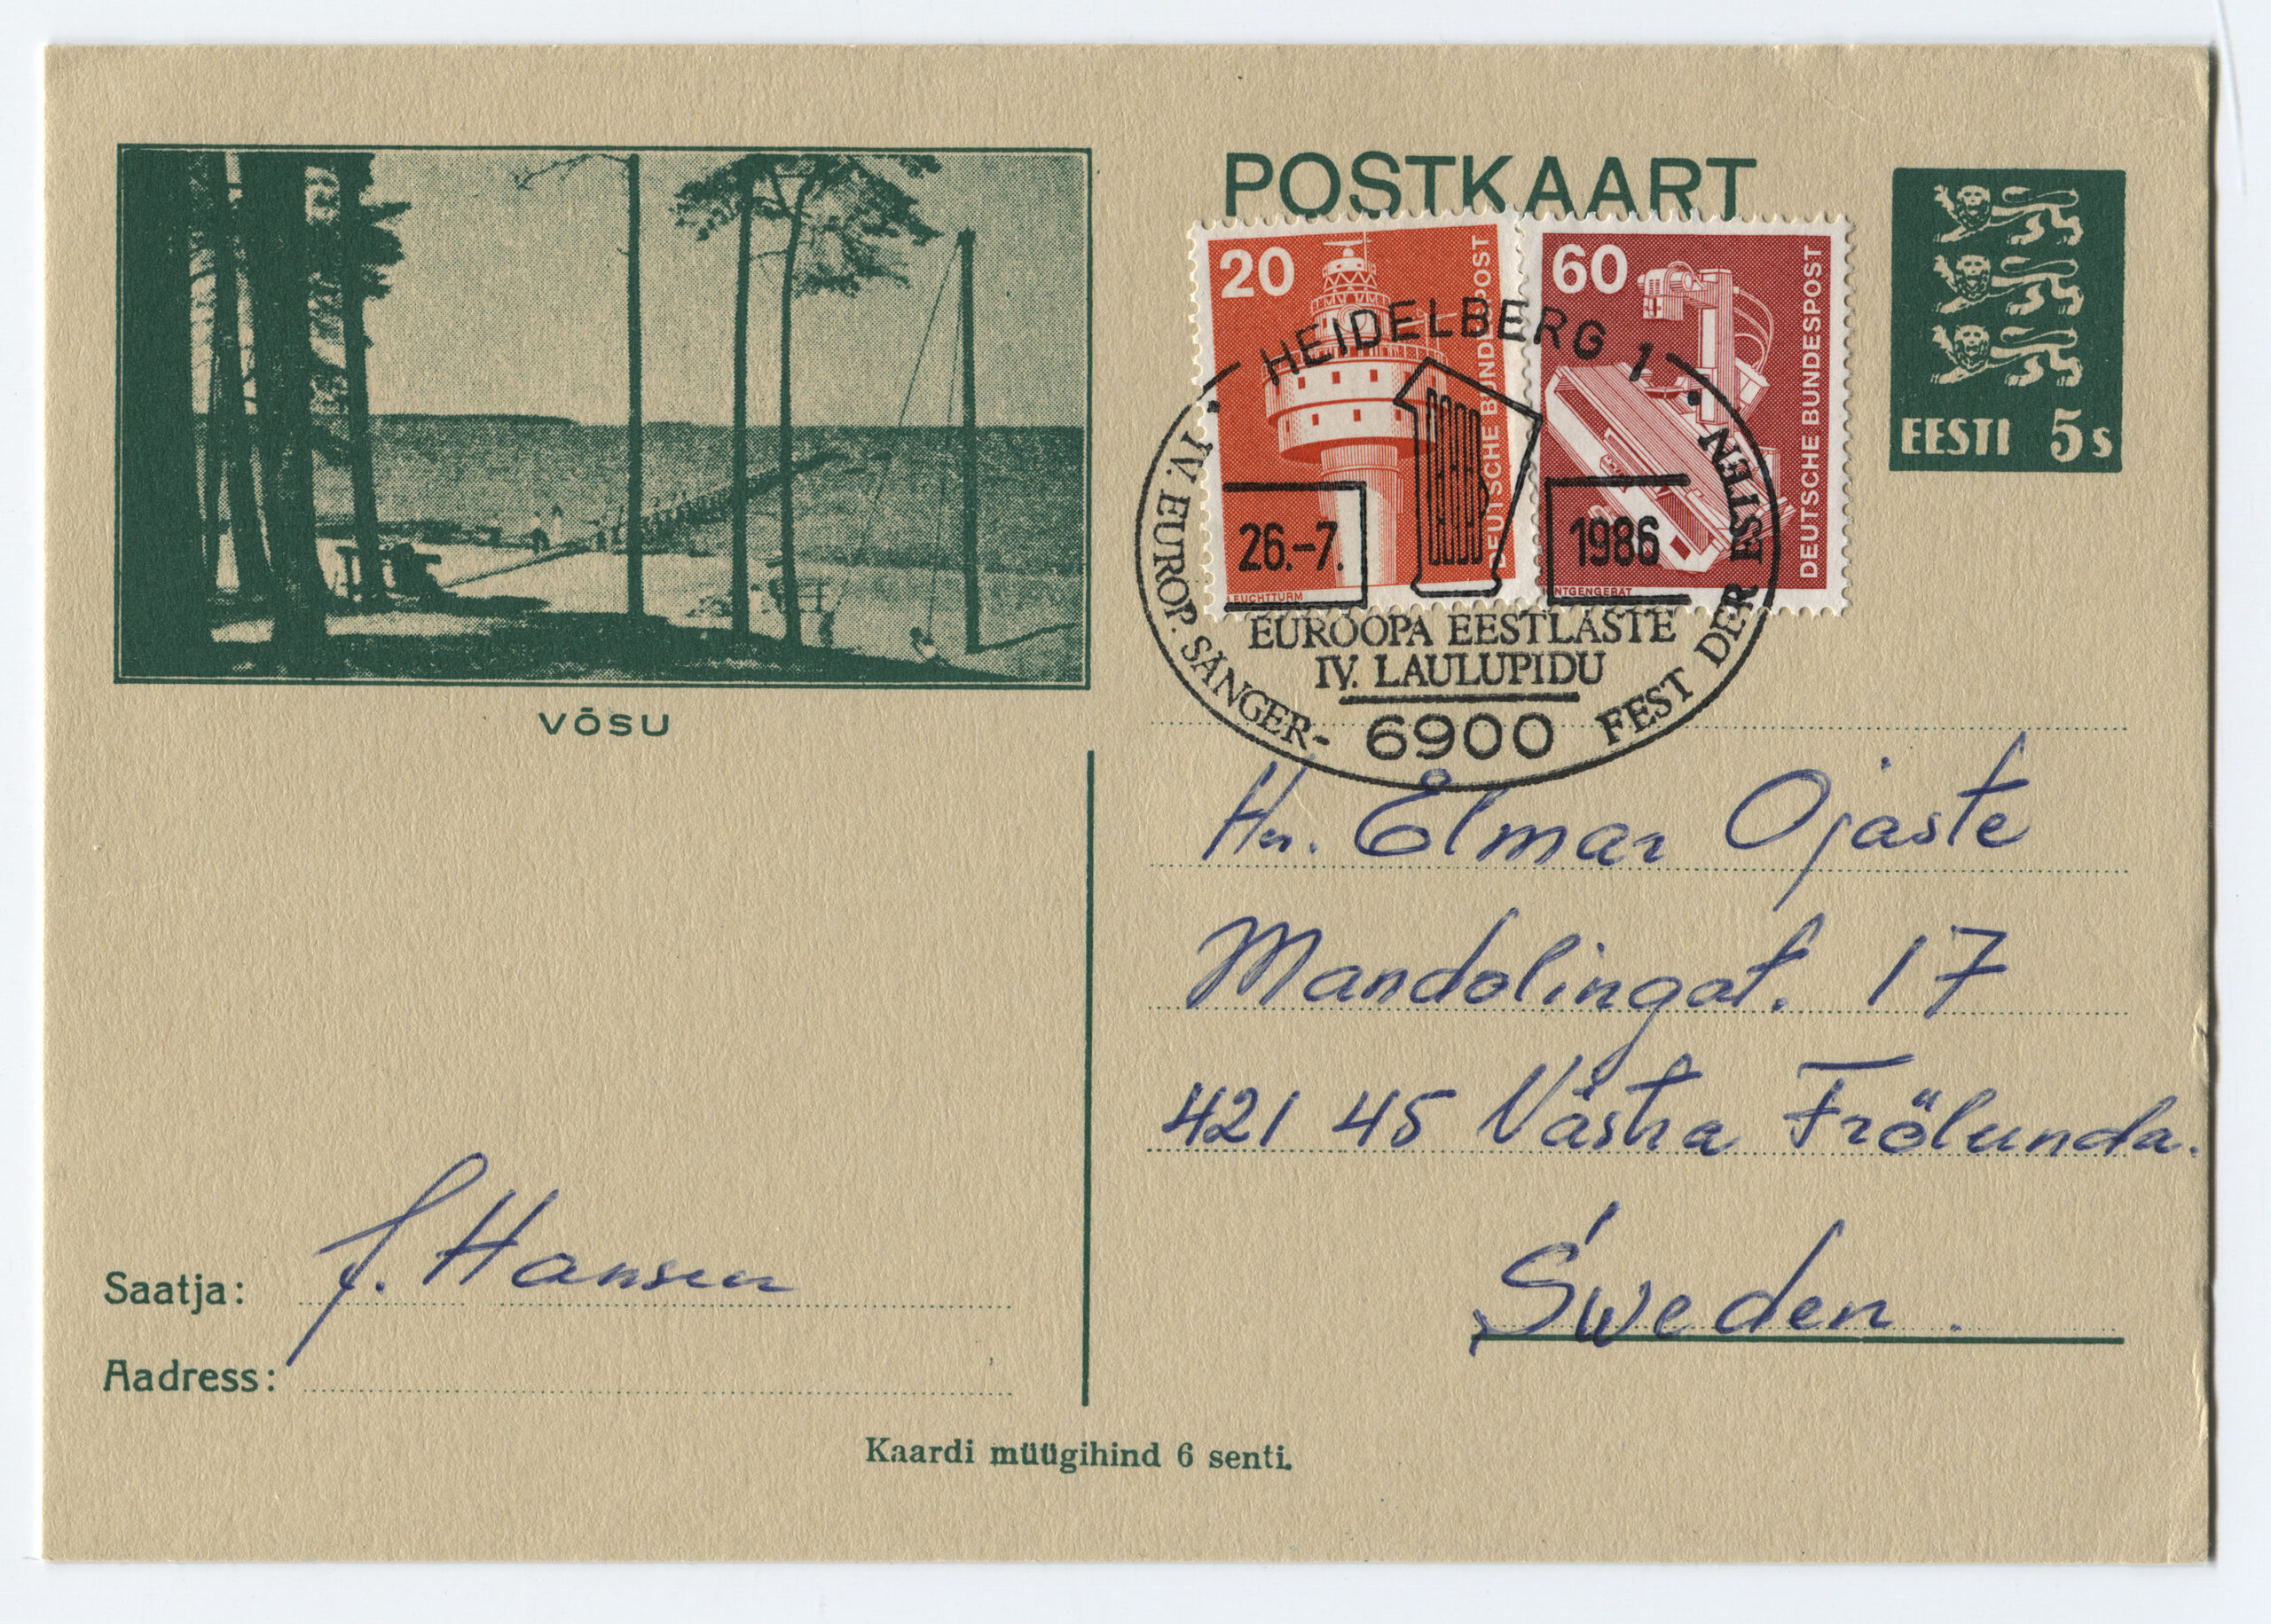 POSTKAART
20
DEUTSCHE BUNDESPOST
LEUCHTTURM
60
DEUTSCHE BUNDESPOST
RÖNTGENGERÄT
EESTI 5s
HEIDELBERG 1
26.-7. 1986
EUROOPA EESTLASTE
IV. LAULUPIDU
6900
IV. EUROP. SÄNGER- FEST DER ESTEN
VÕSU
Hr. Elmar Ojaste
Mandolingat. 17
421 45 Västra Frölunda.
Sweden.
Saatja: J. Hansen
Aadress:
Kaardi müügihind 6 senti.